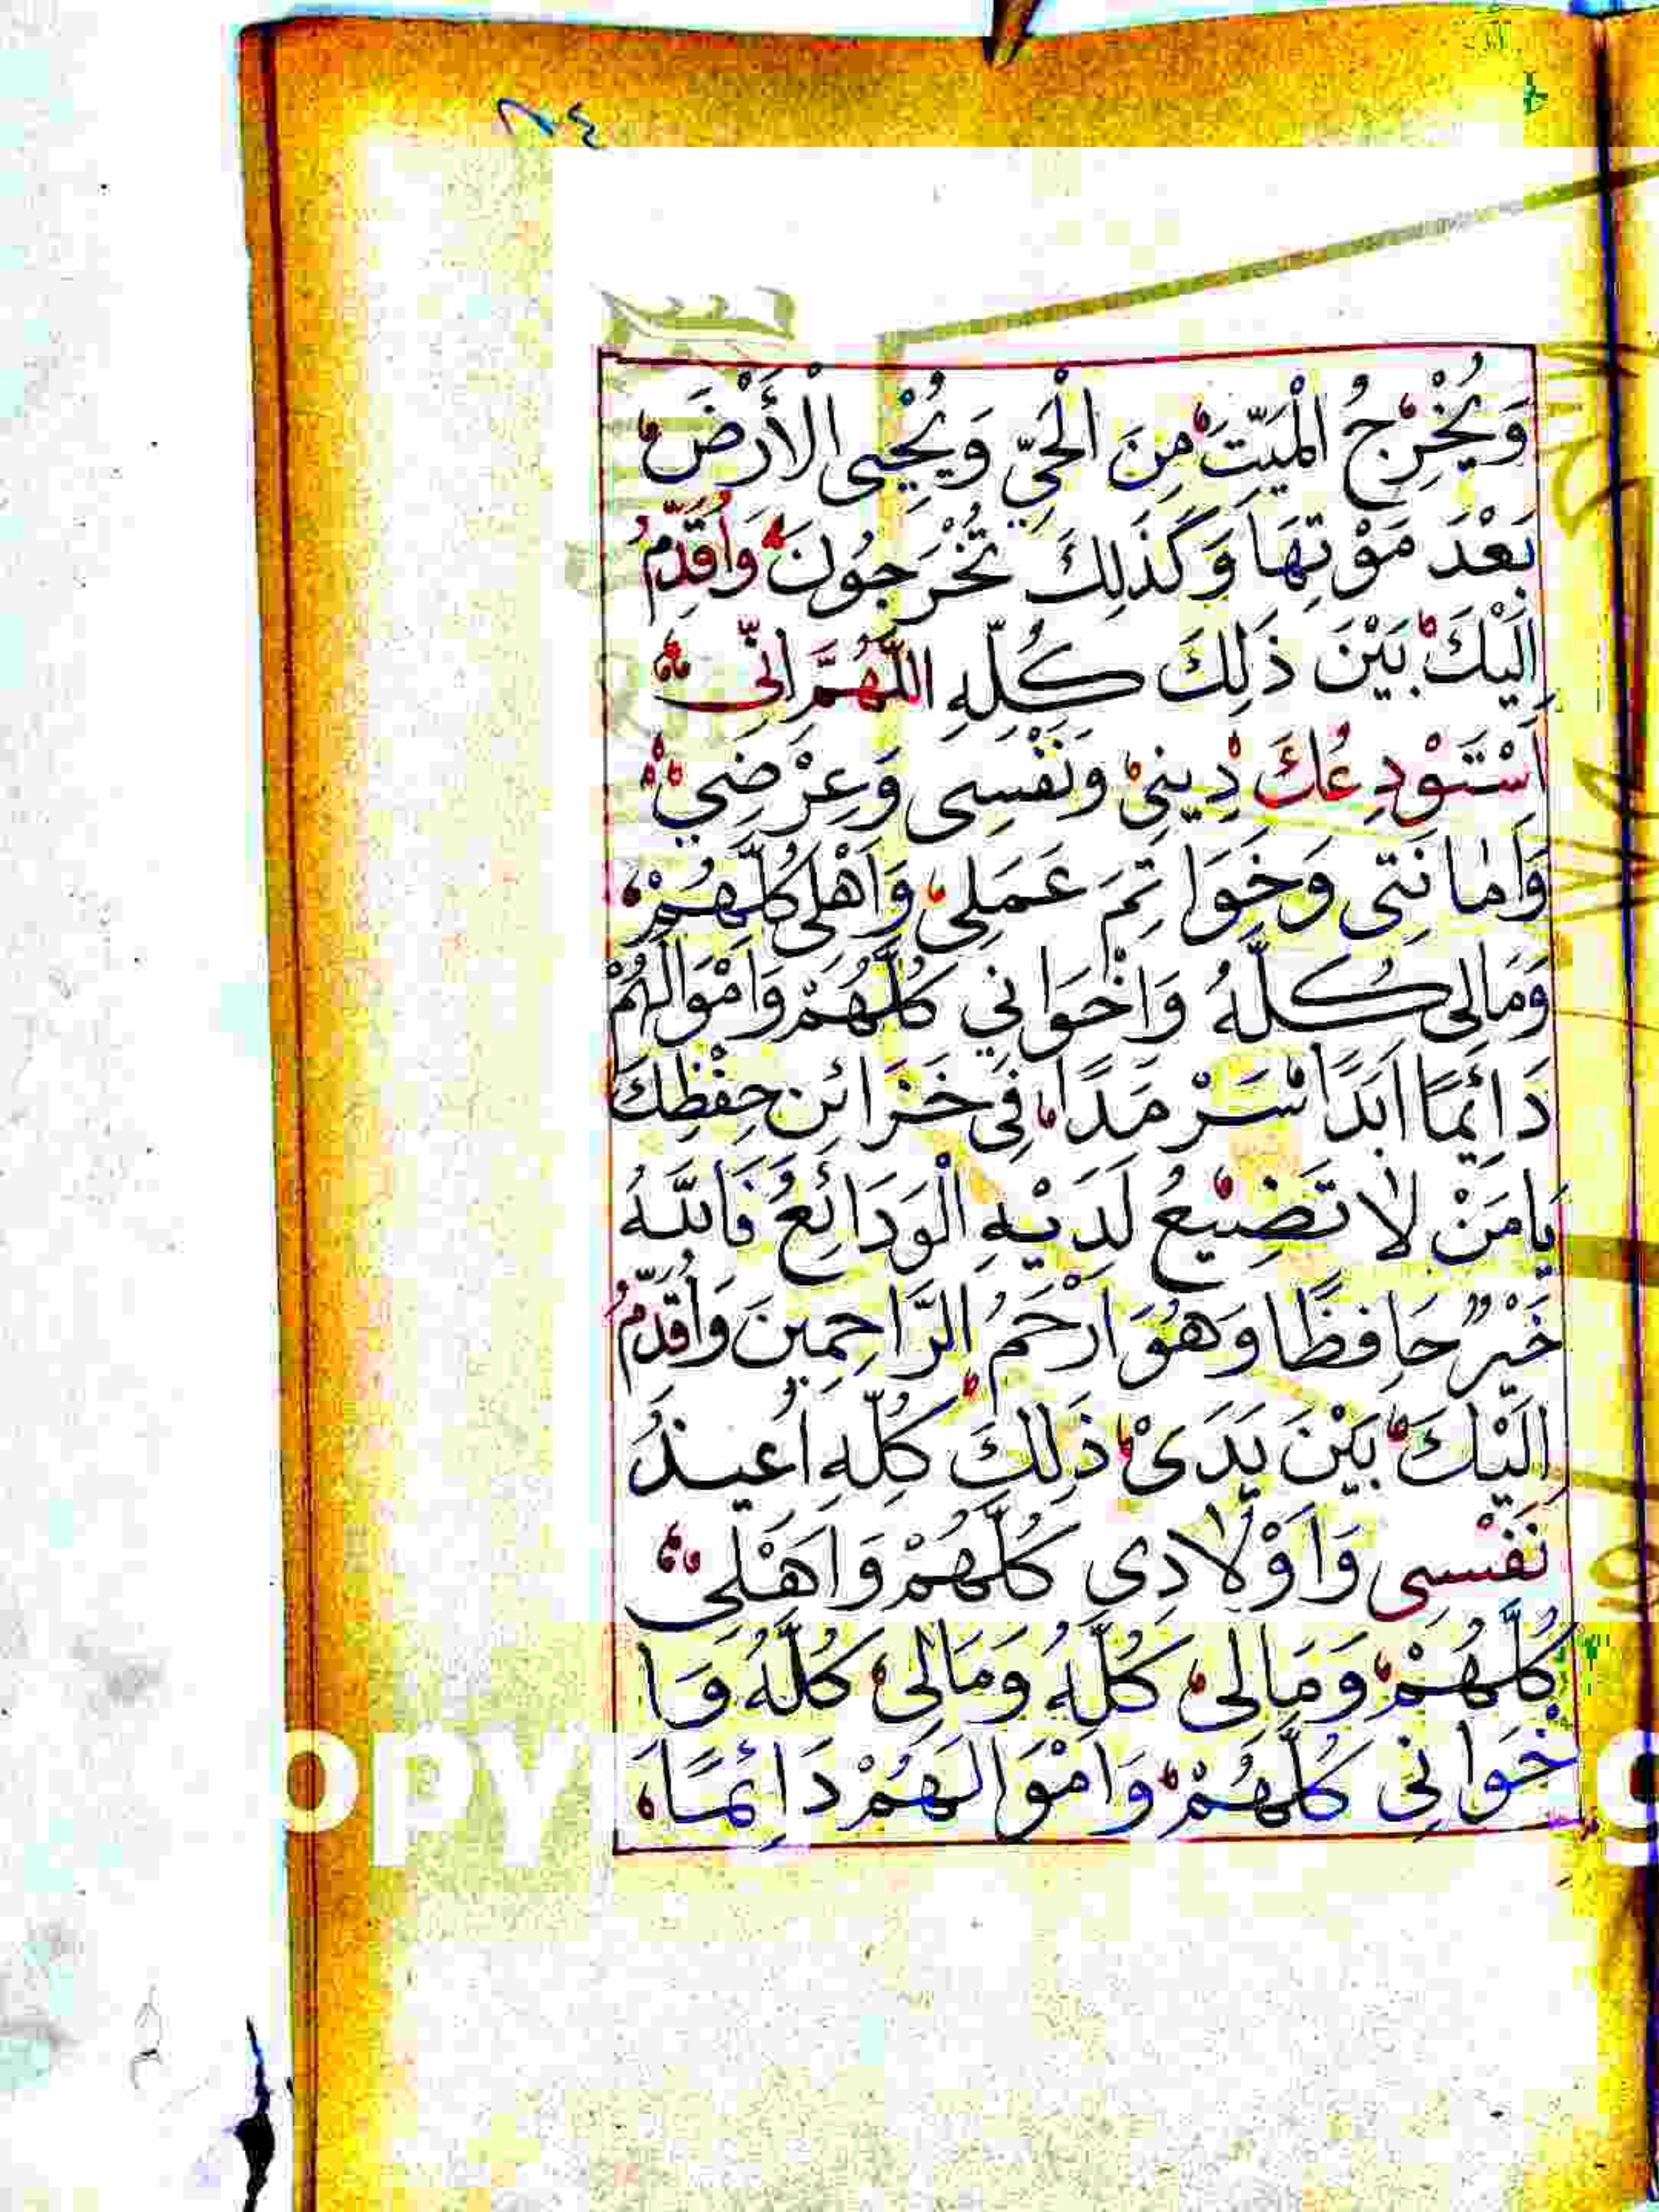 ٨٤
وَيُخْرِجُ الْمَيِّتَ مِنَ الْحَيِّ وَيُحْيِى الْأَرْضَ
بَعْدَ مَوْتِهَا وَكَذٰلِكَ تُخْرَجُونَ وَاُقَدِّمُ
اِلَيْكَ بَيْنَ ذَلِكَ كُلِّهِ اللّٰهُمَّ اِنِّى
اَسْتَوْدِعُكَ دِينِىْ وَنَفْسِى وَعِرْضِي
وَاَمٰانَتِى وَخَوَاتِمَ عَمَلِى وَاَهْلِى كُلَّهُمْ
وَمَالِى كُلَّهُ وَاِخْوَانِي كُلَّهُمْ وَاَمْوَالَهُمْ
دَائِمًا اَبَدًا سَرْمَدًا فِى خَزَائِنِ حِفْظِكَ
يَامَنْ لَا تَضِيْعُ لَدَيْهِ الْوَدَائِعُ فَاللّٰهُ
خَيْرٌ حَافِظًا وَهُوَ اَرْحَمُ الرَّاحِمِينَ وَاُقَدِّمُ
اِلَيْكَ بَيْنَ يَدَىْ ذَلِكَ كُلِّهِ اُعِيذُ
نَفْسِى وَاَوْلَادِى كُلَّهُمْ وَاَهْلِى
كُلَّهُمْ وَمَالِى كُلَّهُ وَمَالِىْ كُلَّهُ وَا
خْوَانِي كُلَّهُمْ وَاَمْوَالَهُمْ دَائِمًا
OPY